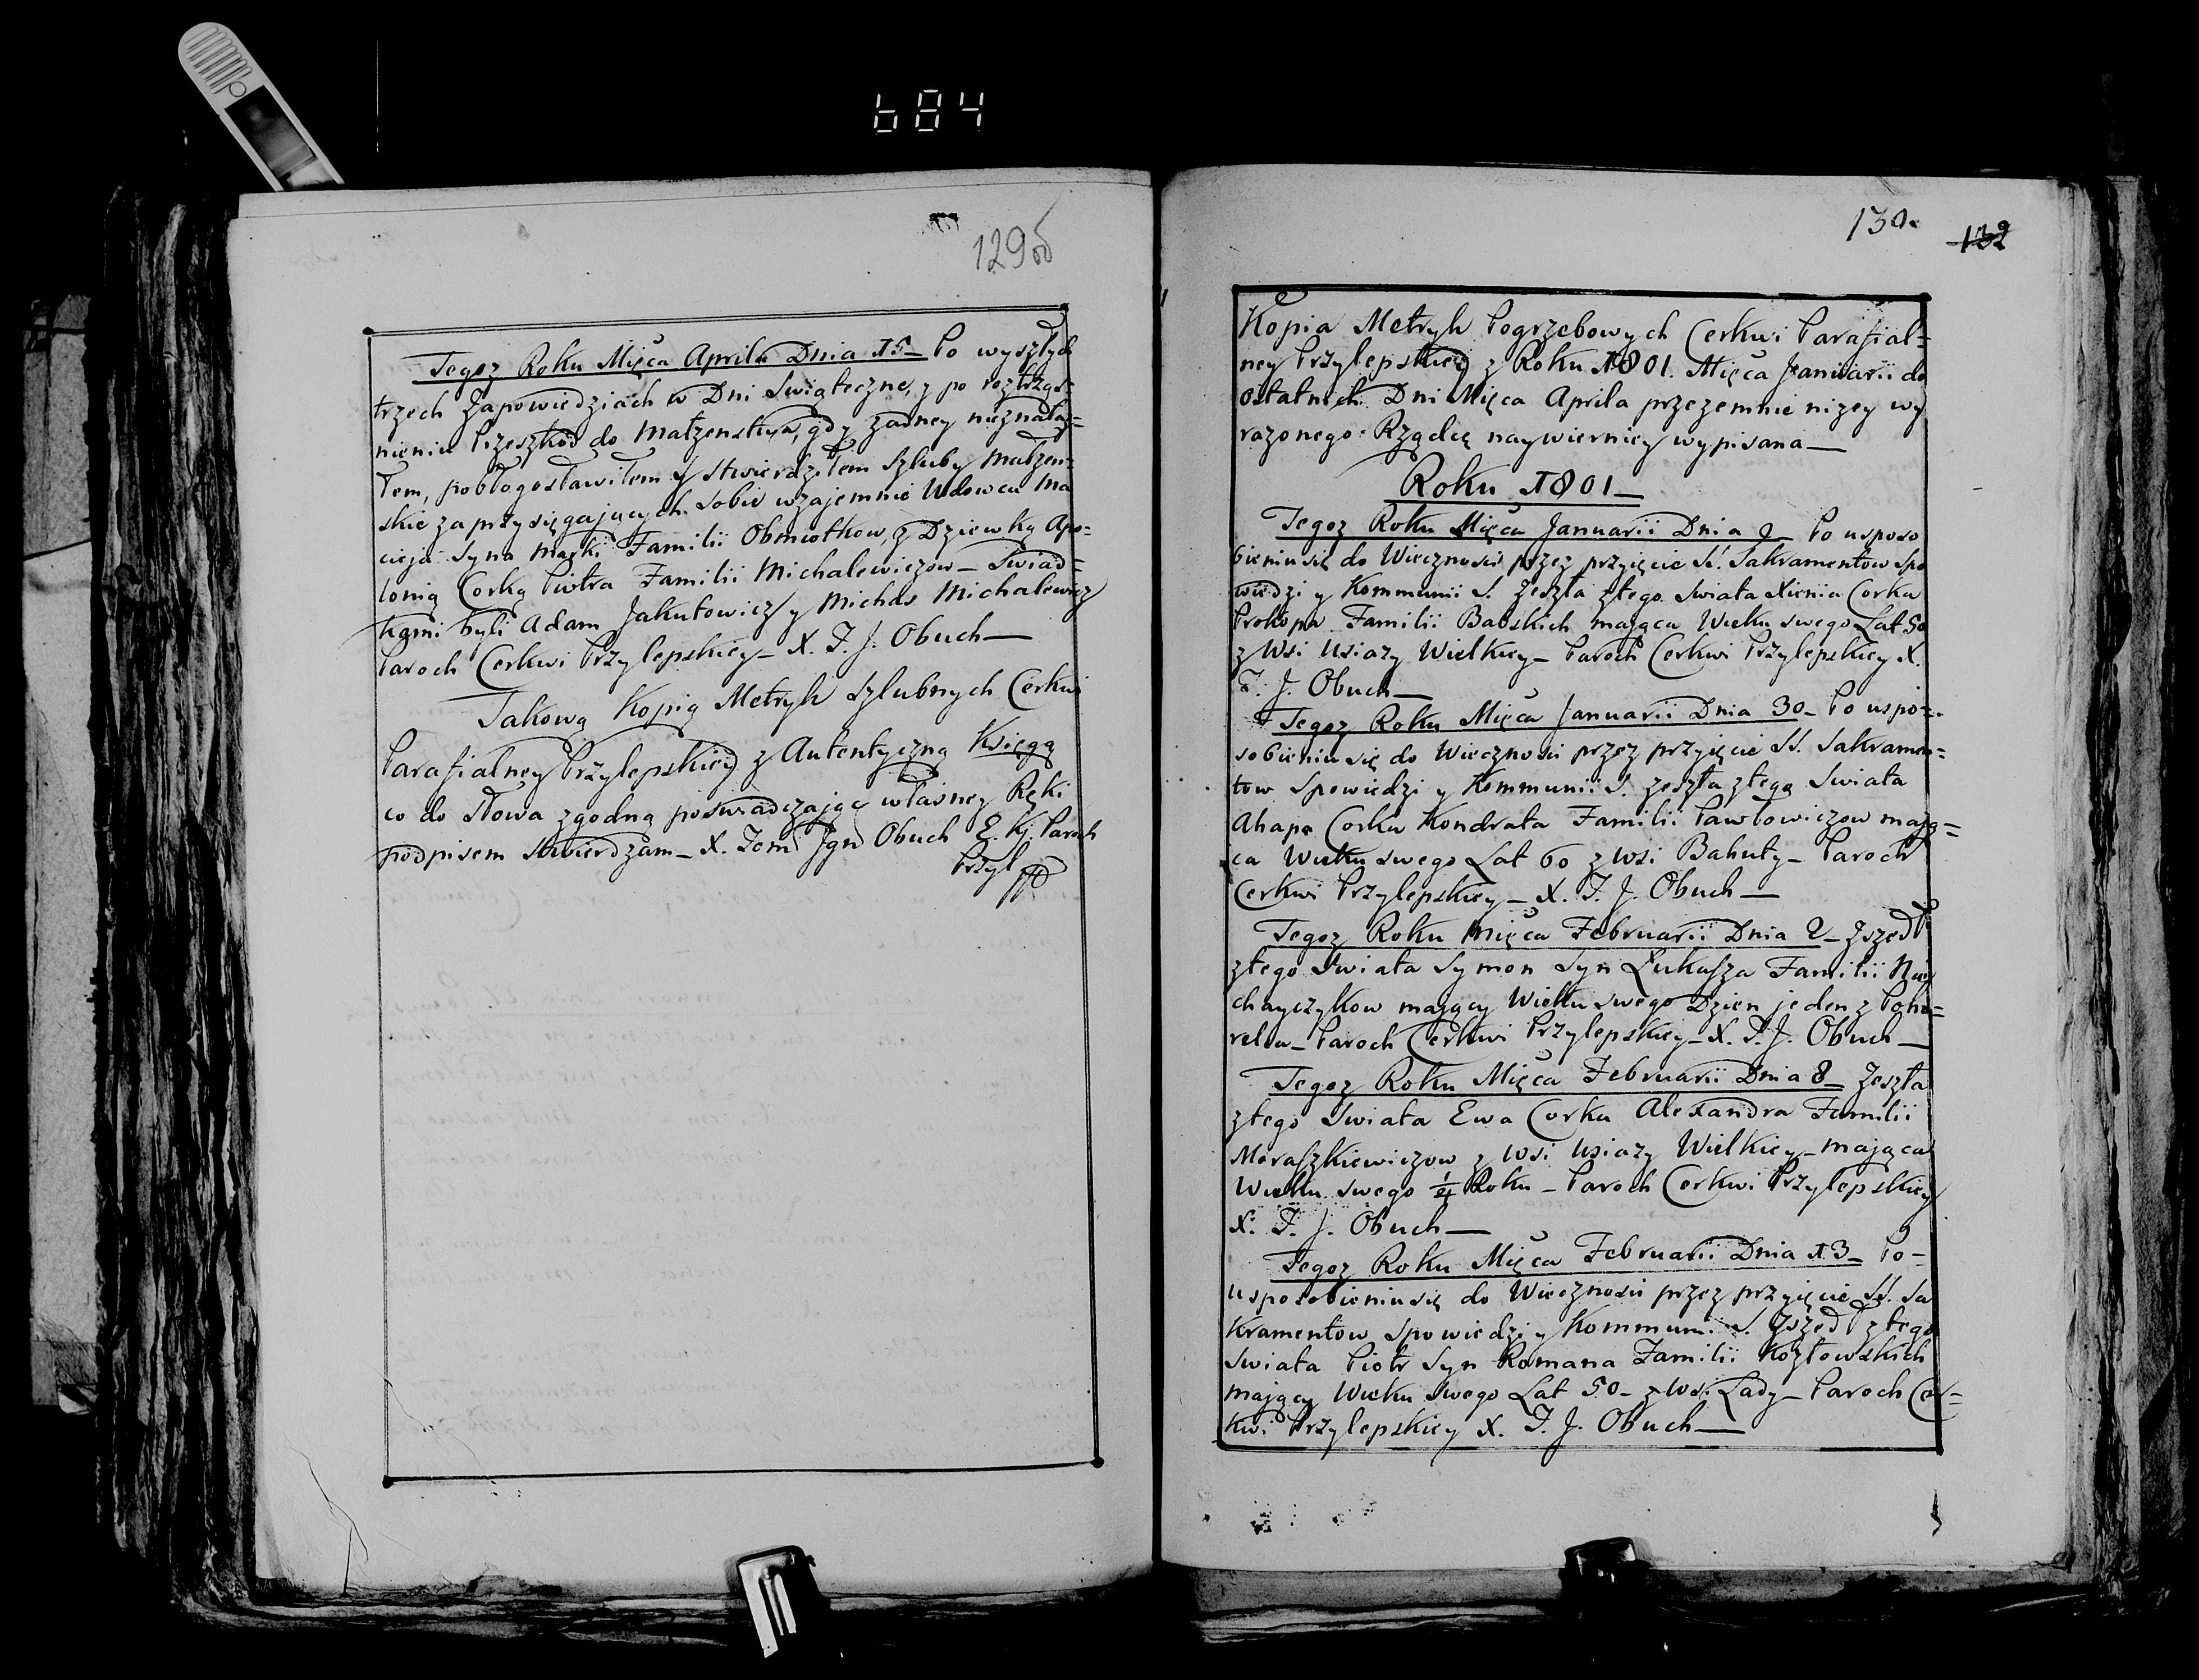 684
129об
Tegoż Roku Mięca Aprila Dnia 15_ Po wyszłych
trzech Zapowiedziach w Dni Swiąteczne, y po roztrząs=
nieniu Przeszkod do Małzenstwa, gdy żadney nieznalaz=
łem, pobłogosławiłem y stwierdziłem Szluby Małzen=
skie zaprzysięgających sobie wzajemnie Wdowca Ma
cieja Syna Marki Familii Obmiotkow, z Dziewką Apo=
lonią Corką Piotra Familii Michalewiczow_ Swiad=
kami byli Adam Jakutowicz y Michas Michalewicz
Paroch Cerkwi Przylepskiey_ X. T. J. Obuch_
Takową Kopią Metryk Szlubnych Cerkwi
Parafialney Przylepskiey z Autentyczną Księgą
co do słowa zgodną poswiadczając własney Ręki
podpisem stwierdzam_ X. Tom Jgn Obuch Paroch
Przyl
130.
132
Kopia Metryk Pogrzebowych Cerkwi Parafial=
ney Przylepskiey z Roku 1801. Mięca Januarii do
Ostatnich Dni Mięca Aprila przezemnie niżey wy
rażonego Rządcę naywierniey wypisana_
Roku 1801_
Tegoż Roku Mięca Januarii Dnia 2_ Po usposo
bieniu się do Wieczności przez przyięcie SS. Sakramentow Spo
wiedzi y Kommunii S. Zeszła z tego Swiata Xienia Corka
Prokopa Familii Babskich mająca Wieku swego Lat 50
z Wsi Usiaży Wielkiey_ Paroch Cerkwi Przylepskiey X.
T. J. Obuch_
Tegoż Roku Mięca Januarii Dnia 30_ Po uspo=
sobieniu się do Wieczności przez przyięcie SS. Sakramen=
tow Spowiedzi y Kommunii S. zeszła z tego Swiata
Ahapa Corka Kondrata Familii Pawłowiczow mają=
ca Wieku swego Lat 60 z Wsi Bahuty_ Paroch
Cerkwi Przylepskiey_ X. T. J. Obuch_
Tegoż Roku Mięca Februarii Dnia 2_ Zszedł
z tego Swiata Symon Syn Łukasza Familii
chayczykow mający Wieku swego Dzien jeden z Poho=
relea_ Paroch Cerkwi Przylepskiey_ X. T. J. Obuch_
Tegoż Roku Mięca Februarii Dnia 8_ Zeszła
z tego Swiata Ewa Corka Alexandra Familii
Moraszkiewiczow z Wsi Usiaży Wielkiey_ mająca
Wieku swego Roku_ Paroch Cerkwi Przylepskiey
X. T. J. Obuch_
Tegoż Roku Mięca Februarii Dnia 13_ Po=
usposobieniu się do Wieczności przez przyięcie SS. Sa
kramentow Spowiedzi y Kommunii S. Zszedł z tego
Swiata Piotr Syn Romana Familii Kozłowskich
mający Wieku Swego Lat 50_ z Wsi Lady_ Paroch Cer=
kwi Przylepskiey X. T. J. Obuch_